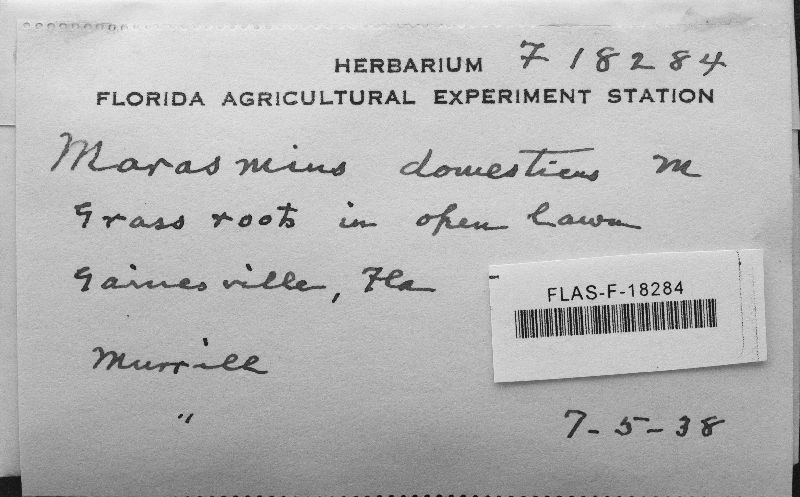 HERBARIUM F 18284
FLORIDA AGRICULTURAL EXPERIMENT STATION
Marasmius domesticus M
Grass roots in open lawn
Gainesville, Fla
FLAS-F-18284
Murrill
"
7-5-38